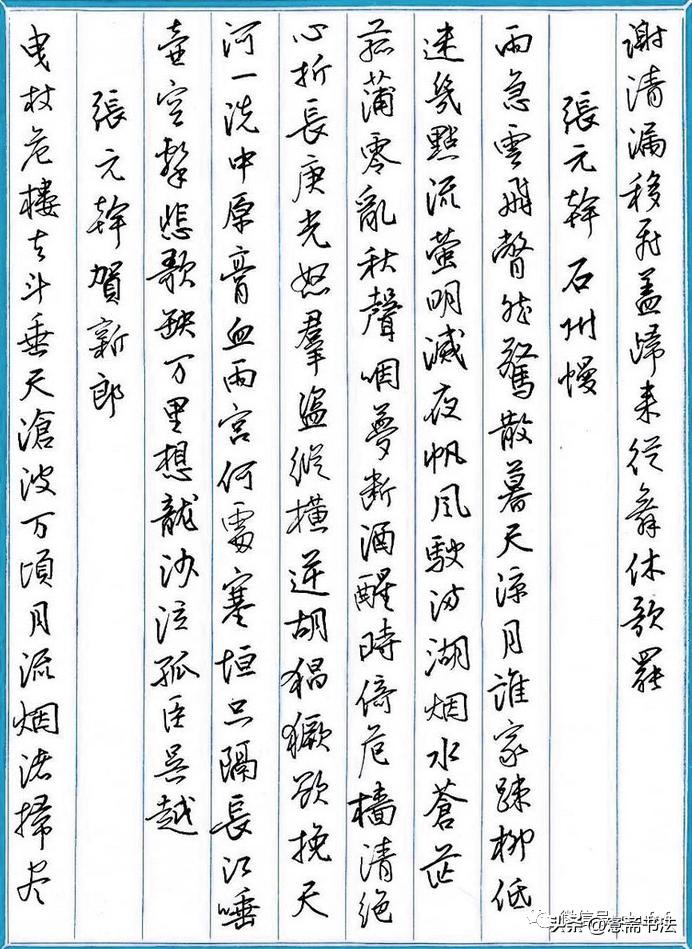 謝清漏移飛蓋歸来從舞休歌罷
張元幹石州慢
雨急雲飛瞥然驚散暮天涼月誰家踈柳低
迷幾點流萤明滅夜帆风駛满湖烟水蒼茫
菰蒲零亂秋聲咽夢断酒醒時倚危檣清绝
心折長庚光怒羣盜縱横逆胡猖獗欲挽天
河一洗中原膏血兩宫何處塞垣只隔長江唾
壶空擊悲歌缺万里想龍沙泣孤臣吴越
張元幹賀新郎
曳杖危樓去斗垂天滄波万頃月流烟渚掃尽
头条 @斋书法